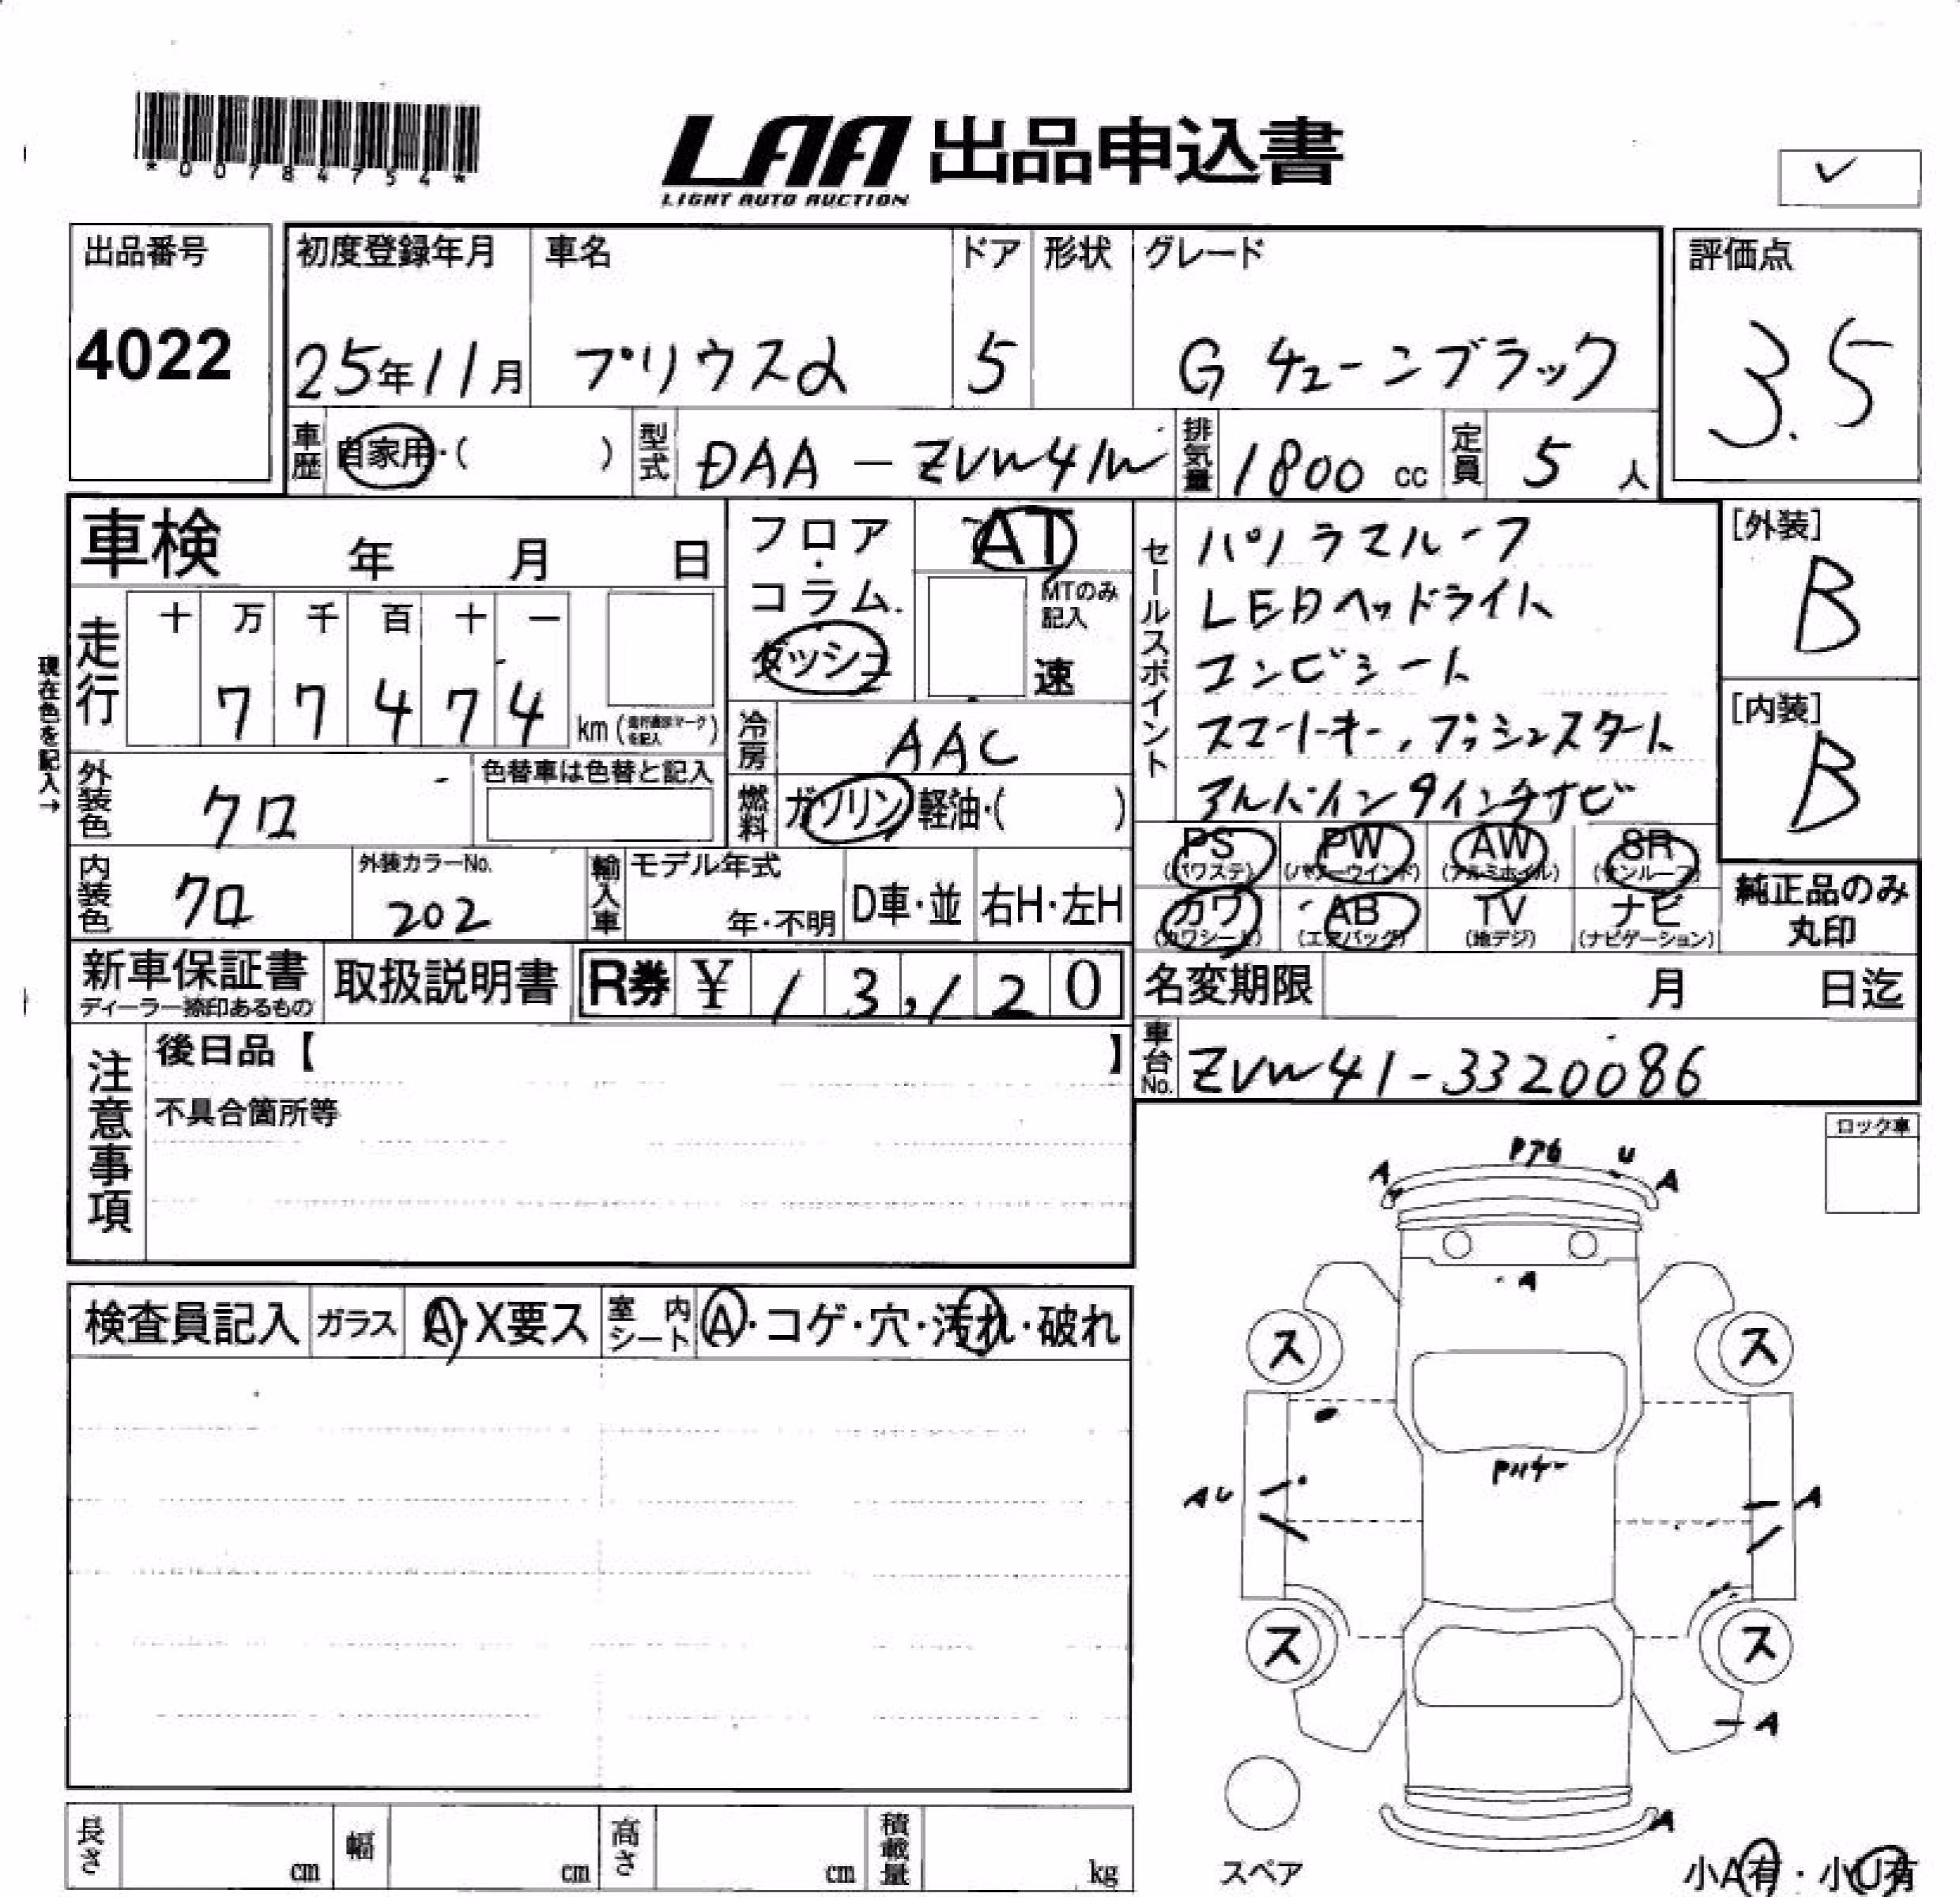 *00784754*
LAA 出品申込書
LIGHT AUTO AUCTION
出品番号
4022
初度登録年月
25年11月
車名
プリウスα
ドア
5
形状
グレード
G チューンブラック
評価点
3.5
車歴
自家用・( )
型式
DAA-ZVW41W
排気量
1800 cc
定員
5 人
車検 年 月 日
現在色を記入→
走行
十 万 千 百 十 一
7 7 4 7 4
km (
を記入 )
フロア・コラム・
ダッシュ
AT
MTのみ
記入
速
冷房
AAC
燃料
ガソリン 軽油・( )
セールスポイント
パノラマルーフ
LEDヘッドライト
コンビシート
スマートキー, プッシュスタート
アルパイン9インチナビ
[外装]
B
[内装]
B
外装色
クロ
色替車は色替と記入
内装色
クロ
外装カラーNo.
202
輸入車
モデル年式
年・不明
D車・並
右H・左H
PS
(パワステ)
PW
(パワーウインド)
AW
(アルミホイル)
SR
(サンルーフ)
カワ
(カワシート)
AB
(エアバッグ)
TV
(地デジ)
ナビ
(ナビゲーション)
純正品のみ
丸印
新車保証書
ディーラー捺印あるもの
取扱説明書
R券 ¥ 13,120
名変期限 月 日迄
車台No.
ZVW41-3320086
注意事項
後日品【 】
不具合箇所等
ロック車
検査員記入
ガラス
A・X要ス
室内シート
A・コゲ・穴・汚れ・破れ
A
U
A
A
ス
ス
AU
A
ス
ス
A
A
スペア
小A有・小U有
長さ cm
幅 cm
高さ cm
積載量 kg